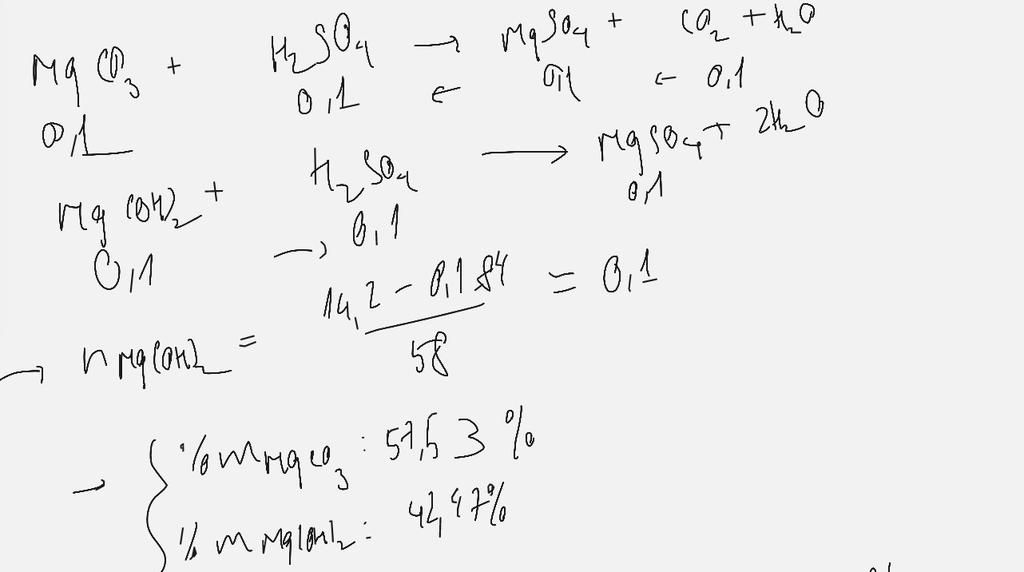 MgCO₃ + H₂SO₄ → MgSO₄ + CO₂ + H₂O
0,1 0,1 ← 0,1 ← 0,1
Mg(OH)₂ + H₂SO₄ → MgSO₄ + 2H₂O
0,1 → 0,1 0,1
→ nMg(OH)₂ = (14,2 - 0,1.84)/58 = 0,1
→ { %mMgCO₃ : 57,53 %
%mMg(OH)₂ : 42,47%